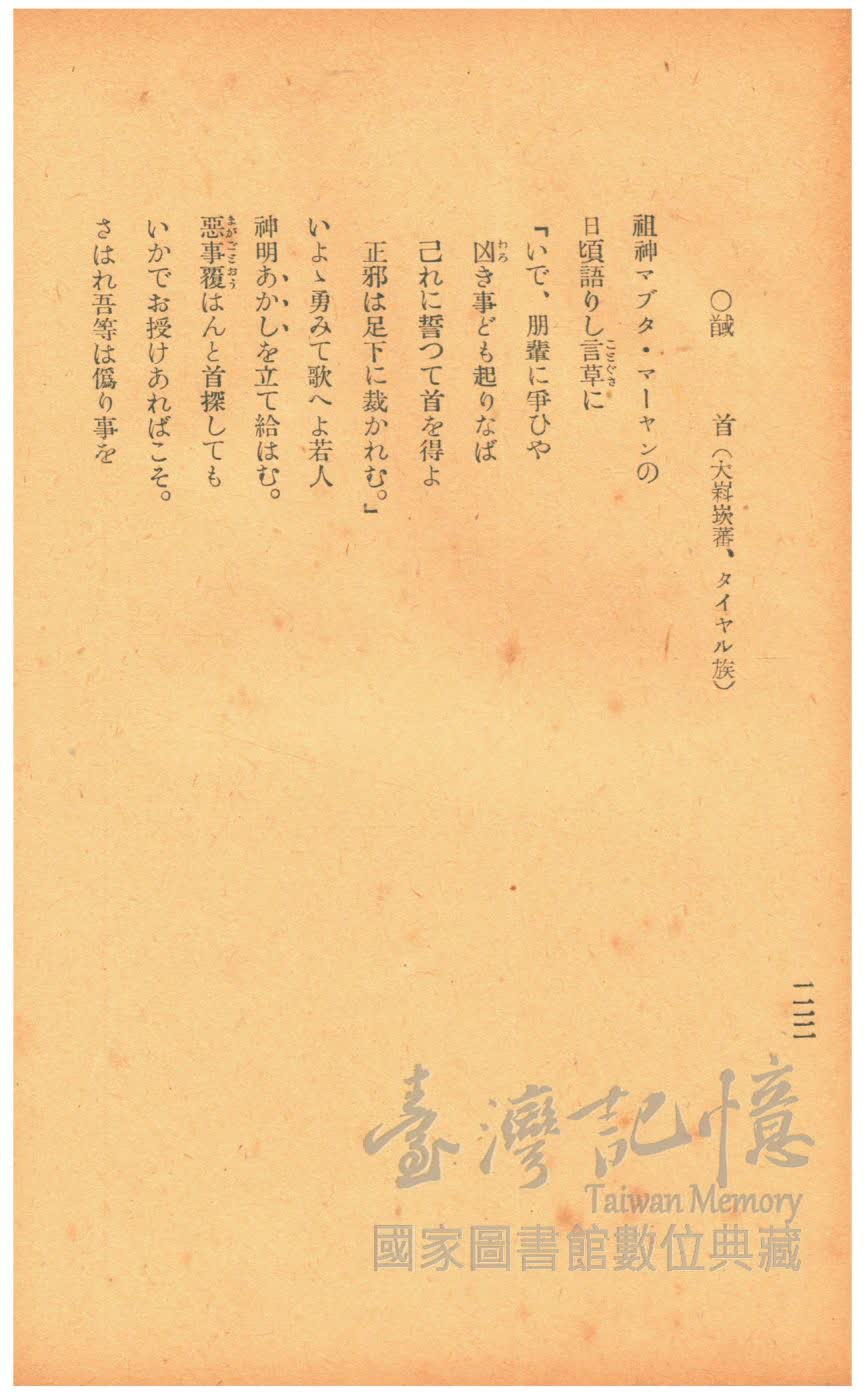 ○馘首（大嵙崁蕃、タイヤル族）
祖神マブタ・マーヤンの
日頃語りし言草に
ことぐさ
『いで、朋輩に爭ひや
凶き事ども起りなば
わろ
己れに誓つて首を得よ
正邪は足下に裁かれむ。』
いよゝ勇みて歌へよ若人
神明あかしを立て給はむ。
惡事覆はんと首探しても
まがごとおう
いかでお授けあればこそ。
さはれ吾等は僞り事を
一二二
臺灣記憶
Taiwan Memory
國家圖書館數位典藏